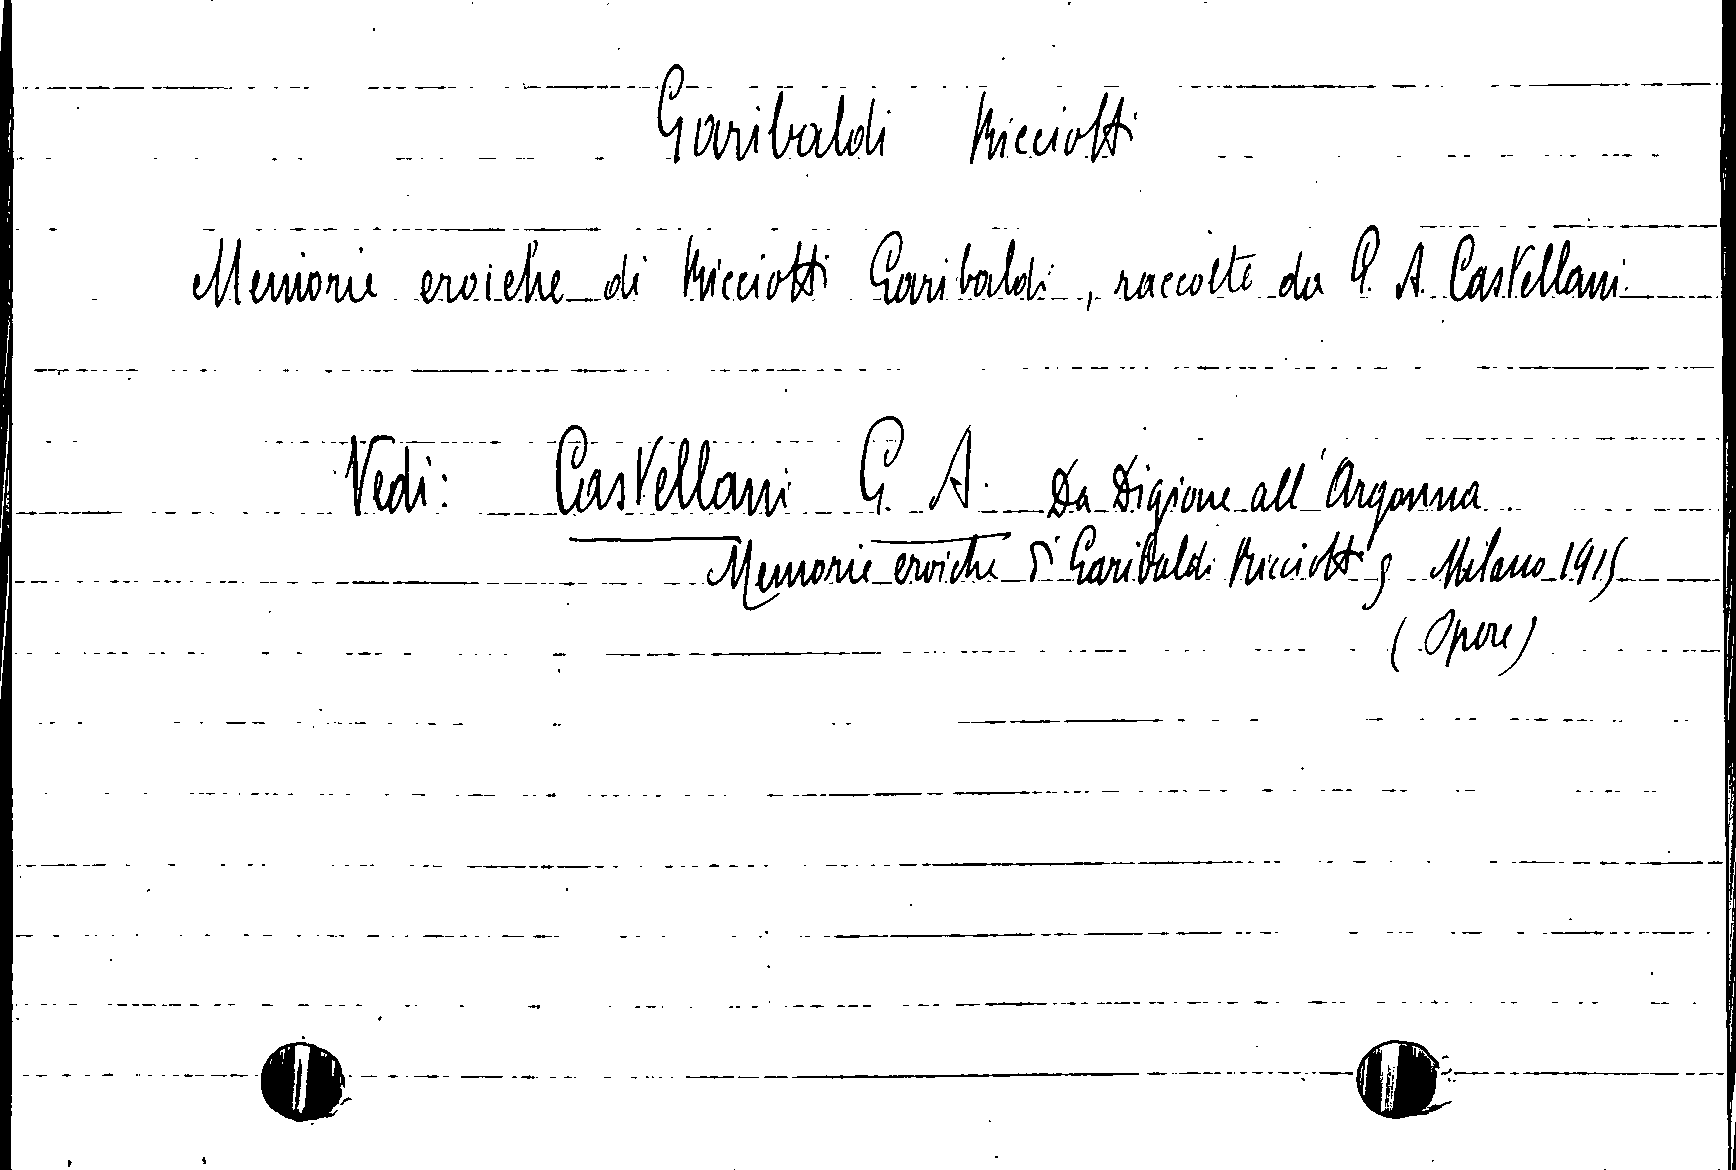 Garibaldi Ricciotti
Memorie eroiche di Ricciotti Garibaldi, raccolte da G. A. Castellani
Vedi: Castellani G. A. Da Digione all'Argonna
Memorie eroiche di Garibaldi Ricciotti, Milano 1915
(Opere)